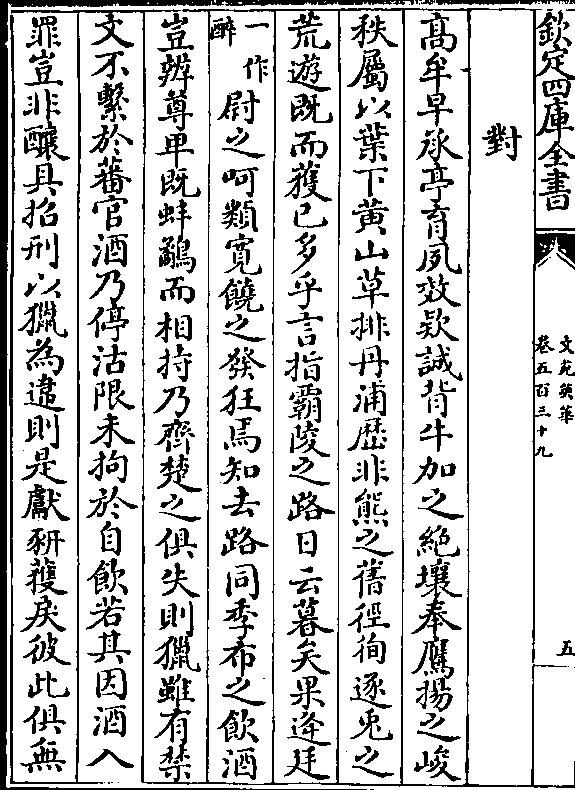 欽定四庫全書
文苑英華
卷五百三十九
五
對
高牟早承亭育夙效欵誠背牛加之絶壤奉鷹揚之峻
秩屬以葉下黄山草排丹浦歴非熊之舊徑徇逐兎之
荒遊既而獲已多乎言指霸陵之路日云暮矣果逄廷
一作
醉
尉之呵類寛饒之發狂焉知去路同季布之飲酒
豈辨尊卑既蚌鷸而相持乃齊楚之俱失則獵雖有禁
文不繫於蕃官酒乃停沽限未拘於自飲若其因酒入
罪豈非釀具招刑以獵為違則是獻豣䕶戾彼此俱無